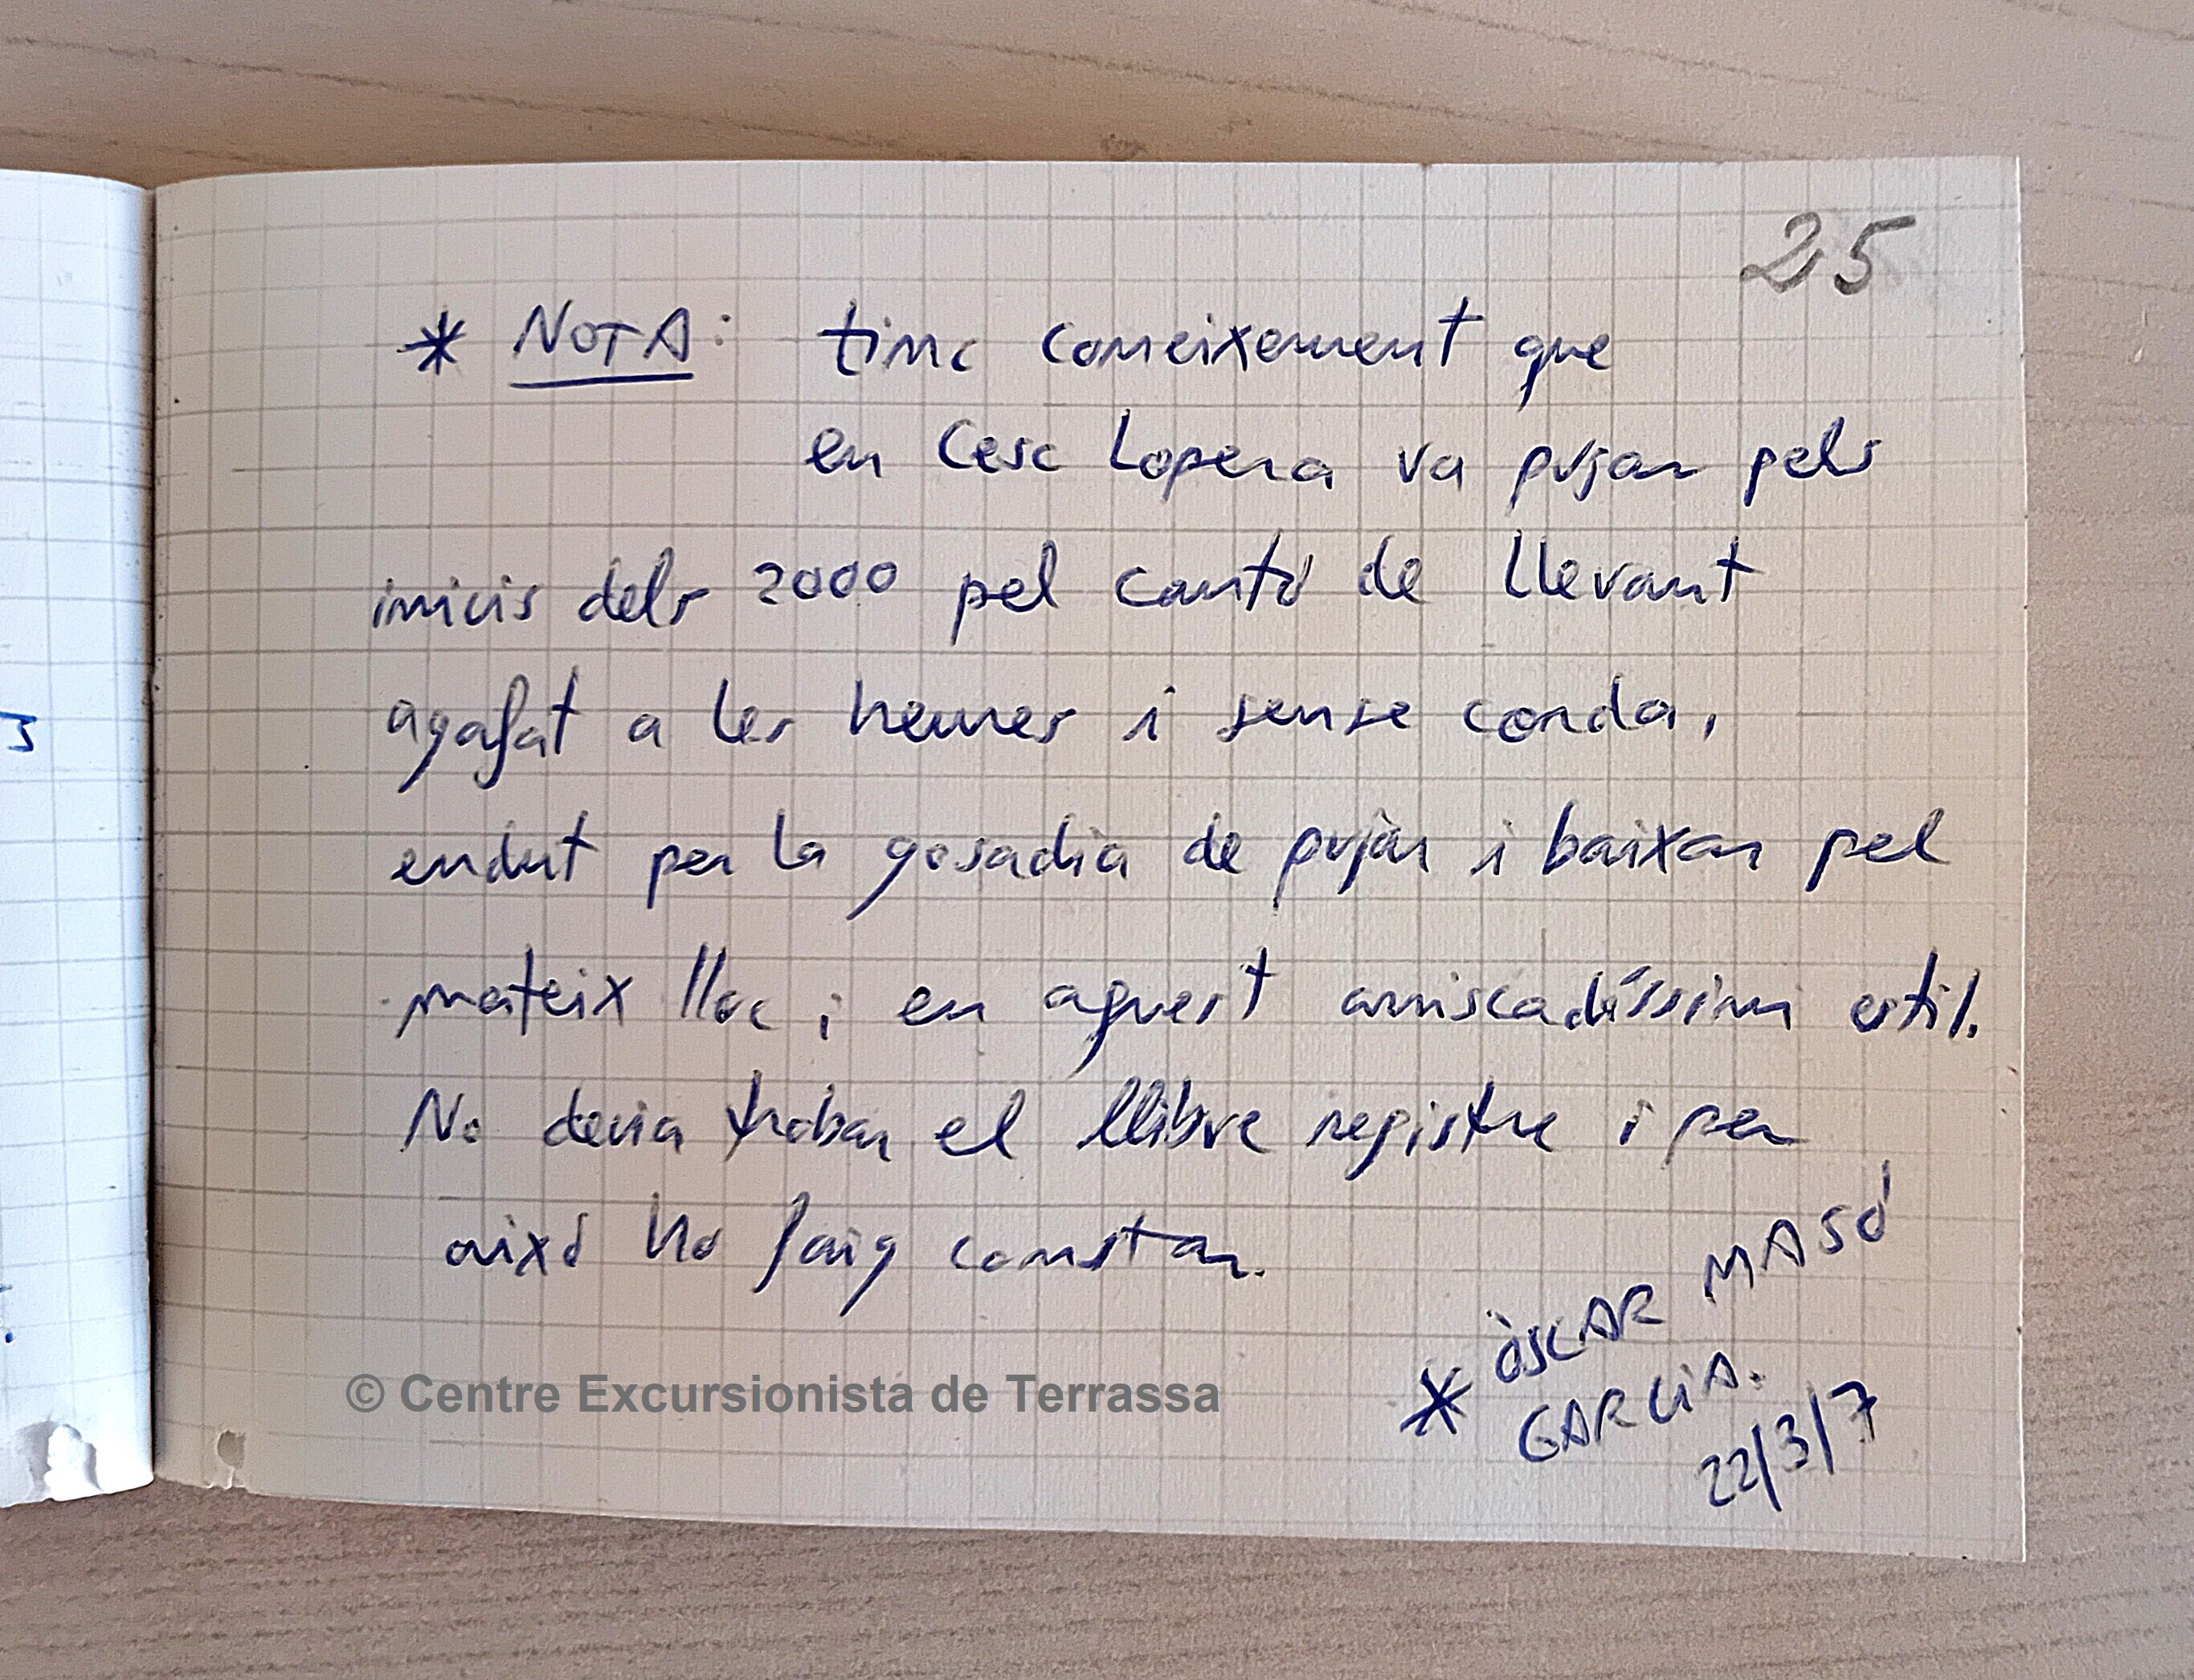 25
* NOTA: tinc coneixement que
en Cesc Lopera va pujar pels
inicis dels 2000 pel cantó de llevant
agafat a les heures i sense corda,
endut per la gosadia de pujar i baixar pel
mateix lloc i en aquest arriscadíssim estil.
No devia trobar el llibre registre i per
això ho faig constar.
* ÒSCAR MASÓ
GARCIA.
22/3/7
© Centre Excursionista de Terrassa